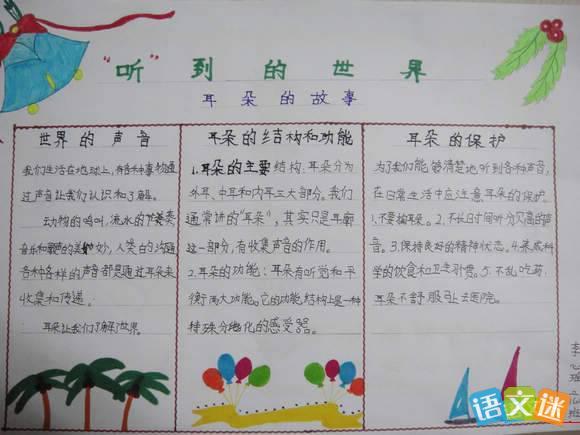 "听"到的世界
耳朵的故事
世界的声音
我们生活在地球上,有各种事物通
过声音让我们认识和了解。
动物的鸣叫,流水的演奏
音乐和歌声的美妙,人类的沟通
各种各样的声音都是通过耳朵来
收集和传递。
耳朵让我们了解了世界。
耳朵的结构和功能
1.耳朵的主要结构:耳朵分为
外耳、中耳和内耳三大部分。我们
通常讲的"耳朵",其实只是耳廓
这一部分,有收集声音的作用。
2.耳朵的功能:耳朵有听觉和平
衡两大功能。它的功能结构上是一种
特殊分化的感受器。
耳朵的保护
为了我们能够清楚地听到各种声音,
在日常生活中应注意耳朵的保护。
1.不要掏耳朵。2.不长时间听分贝高的声
音。3.保持良好的精神状态。4.养成科
学的饮食和卫生习惯。5.不乱吃药,
耳朵不舒服让去医院。
李心瑶
班
语文迷